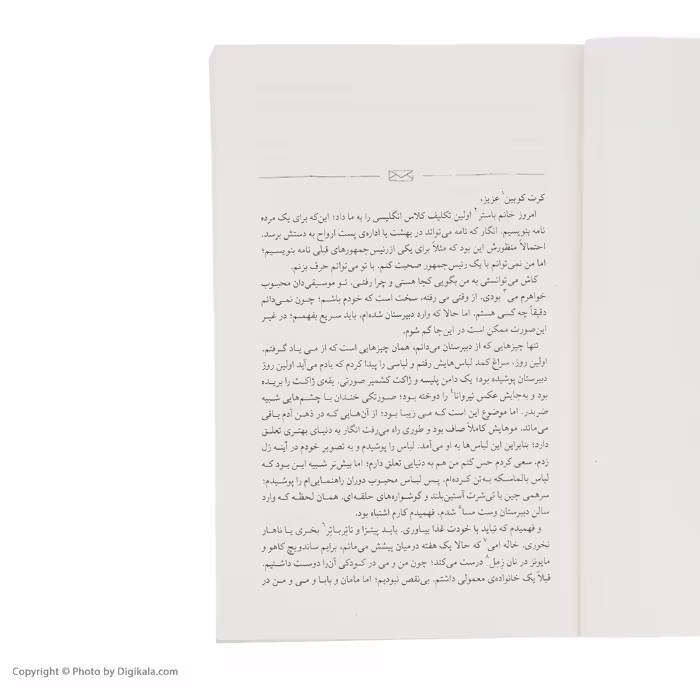 کرت کوبین¹ عزیز،
امروز خانم باستر² اولین تکلیف کلاس انگلیسی را به ما داد؛ این‌که برای یک مرده
نامه بنویسیم. انگار که نامه می‌تواند در بهشت یا اداره‌ی پست ارواح به دستش برسد.
احتمالاً منظورش این بود که مثلاً برای یکی از رئیس‌جمهورهای قبلی نامه بنویسیم؛
اما من نمی‌توانم با یک رئیس‌جمهور صحبت کنم. با تو می‌توانم حرف بزنم.
کاش می‌توانستی به من بگویی کجا هستی و چرا رفتی. تو موسیقی‌دان محبوب
خواهرم می³ بودی. از وقتی می رفته، سخت است که خودم باشم؛ چون نمی‌دانم
دقیقاً چه کسی هستم. اما حالا که وارد دبیرستان شده‌ام، باید سریع بفهمم؛ در غیر
این‌صورت ممکن است در این‌جا گم شوم.
تنها چیزهایی که از دبیرستان می‌دانم، همان چیزهایی است که از می یاد گرفتم.
اولین روز، سراغ کمد لباس‌هایش رفتم و لباسی را پیدا کردم که یادم می‌آید اولین روز
دبیرستان پوشیده بود؛ یک دامن پلیسه و ژاکت کشمیر صورتی. یقه‌ی ژاکت را بریده
بود و به‌جایش عکس نیروانا⁴ را دوخته بود؛ صورتکی خندان با چشم‌هایی شبیه
ضربدر. اما موضوع این است که می زیبا بود؛ از آن‌هایی که در ذهن آدم باقی
می‌ماند. موهایش کاملاً صاف بود و طوری راه می‌رفت انگار به دنیای بهتری تعلق
دارد؛ بنابراین این لباس‌ها به او می‌آمد. لباس را پوشیدم و به تصویر خودم در آینه زل
زدم. سعی کردم حس کنم من هم به دنیایی تعلق دارم؛ اما بیش‌تر شبیه این بود که
لباس بالماسکه به‌تن کرده‌ام. پس لباس محبوب دوران راهنمایی‌ام را پوشیدم؛
سرهمی جین با تی‌شرت آستین‌بلند و گوشواره‌های حلقه‌ای. همان لحظه که وارد
سالن دبیرستان وست مسا⁵ شدم، فهمیدم کارم اشتباه بود.
و فهمیدم که نباید با خودت غذا بیاوری. باید پیتزا و ناتِرباتِر⁶ بخری یا ناهار
نخوری. خاله امی⁷ که حالا یک هفته درمیان پیشش می‌مانم، برایم ساندویچ کاهو و
مایونز در نان زِمِل⁸ درست می‌کند؛ چون من و می در کودکی آن‌را دوست داشتیم.
قبلاً یک خانواده‌ی معمولی داشتم. بی‌نقص نبودیم؛ اما مامان و بابا و می و من در
Copyright © Photo by Digikala.com